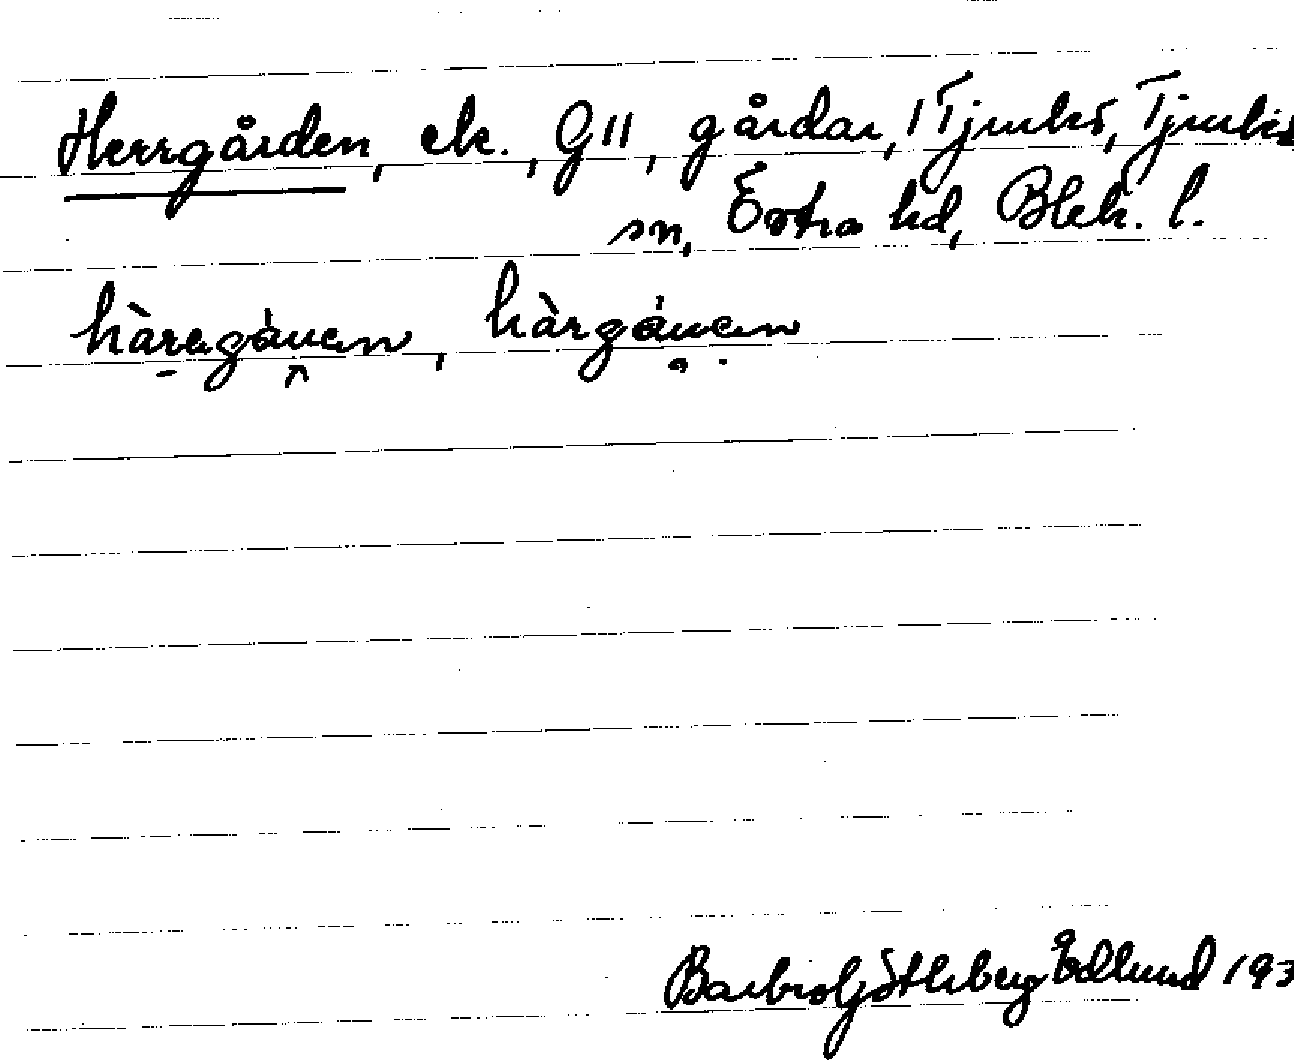 Herrgården, ek., G 11, gårdar, 1 Tjurkö, Tjurkö
sn, Östra hd, Blek. l.
hàragá̀uen, hàrgáuen
Barbro Göthberg Edlund 193